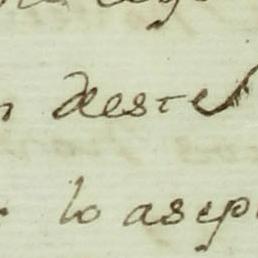 deste
lo asep